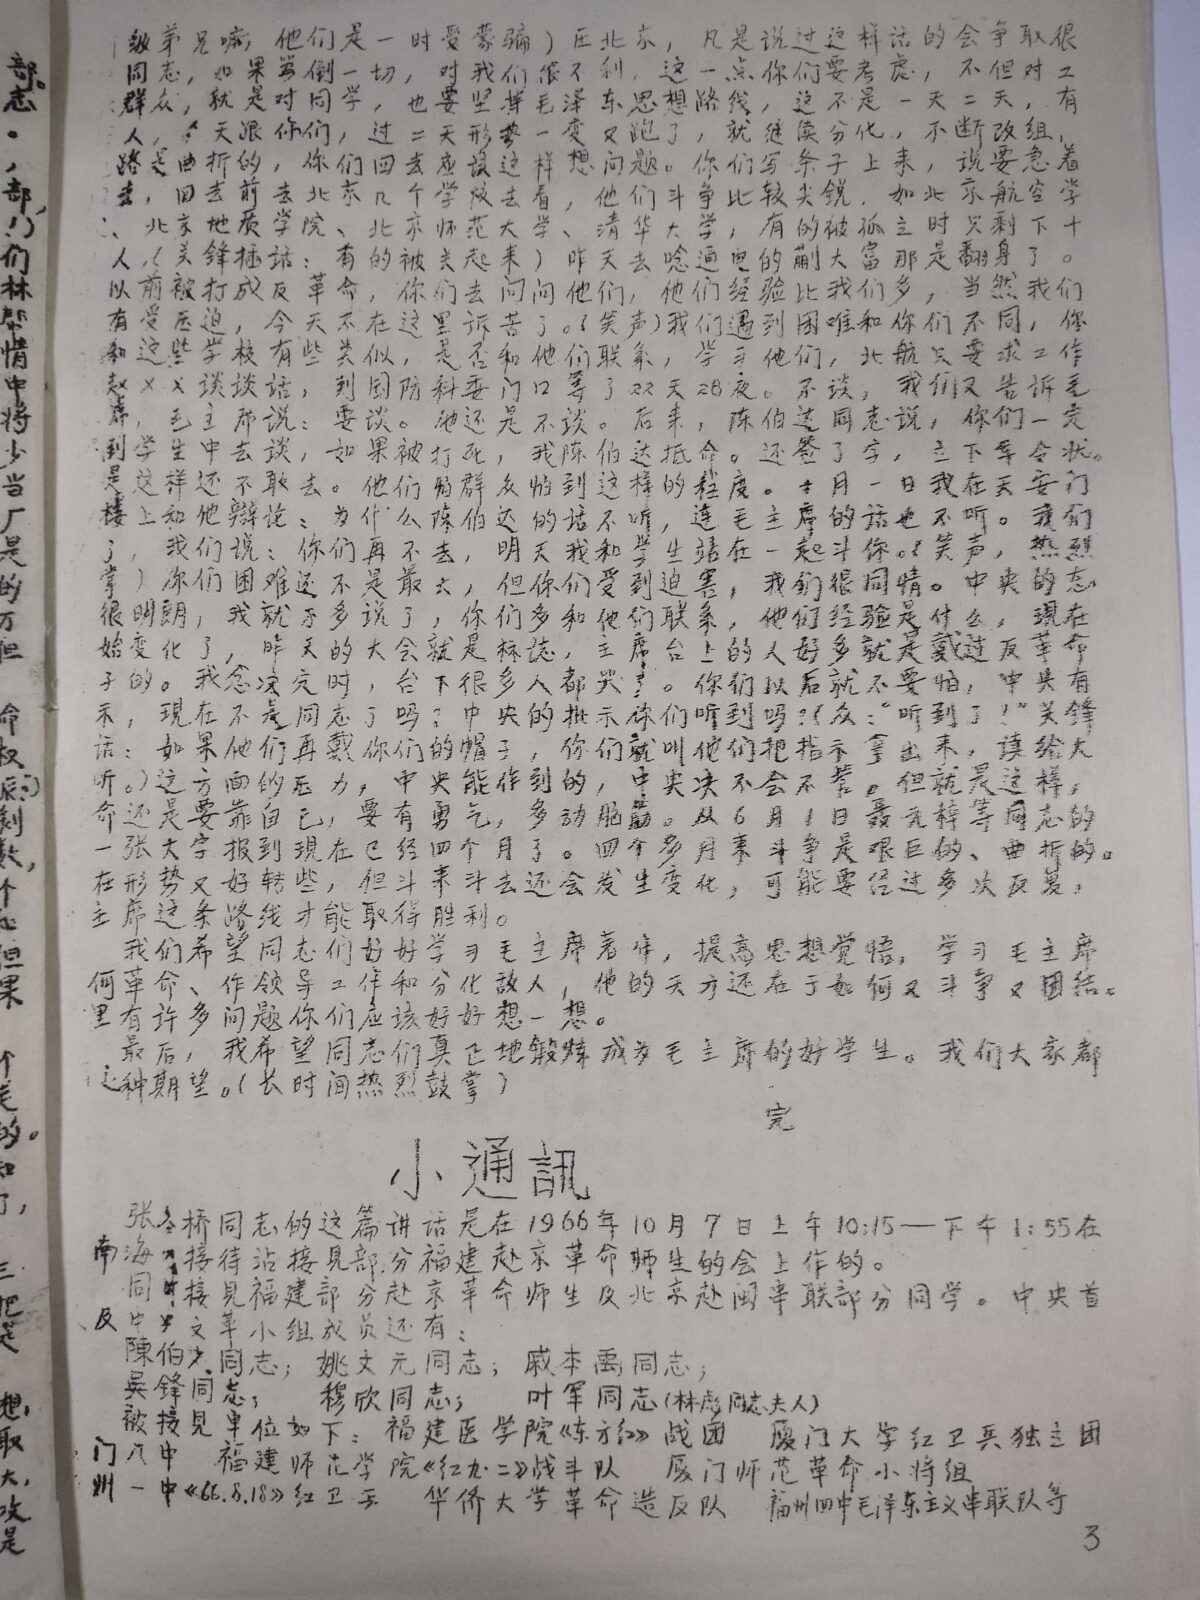 级弟兄嘛，他们是一时受蒙骗）在北京，凡是说过这样话的会争取很
同志，如果当倒一切，对我们很不利，这一点你们要考虑，不但对工
群众，就是对同学，也要坚持毛泽东思想路线，这不是一天二天，有
人，天跟你们，过二天形势一变又跑了，就继续分化，不断改组，
路是曲折的，你们回去应该这样想问题。你们写条子上来，说要急着
去，回去前去北京几个学校去看，他们斗争比较尖锐，如北京航空学
、北京地质学院、北京师范大学、清华大学，有的被孤立时只剩下十
人，（关锋插话：有的被关起来）昨天去唸通电的蒯大富那是翻身了。
以前被打成反革命，你们去问问他们，他们经验比我们多，当然我们
有受压迫，今天不在这里诉苦了。（笑声）我们遇到困难和你们不同，你
和这些学校有些类似，是否和他们联系，学习他们，北航只要求工作
赵××谈谈话，到国防科委门口等了22天28夜。不谈，我们又告诉毛
席，毛主席说：要谈。他还是不谈。后来，陈伯达同志说，你们一定
到学生中去谈，如果被打死，我陈伯达抵命。还签了字，立下军令状。
是这样还不敢去。他们怕群众怕到这样的程度。十月一日我在天安门
楼上和他辩论：为什么陈伯达的话不听，连毛主席的话也不听。我们
了，我们说：你们再不去，明天我和学生站在一起斗你。（笑声，热烈
掌）你们困难还不是最大，但你们受到迫害，我们很同情。中央的态
很明朗，我就不多说了，你们多和他们联系，他们经验是什么，现在
始变化了，昨天的大会就是标志，主席台上的人好多就是戴过反革命
子的。我念决定时，台下很多人都哭了。你们以后就不要怕，中央有
示，现在不是同志了吗？中央的批示你们听到吗？（众：“听到了！”关锋
话：如果他们再戴你们的帽子，你们就叫他们把指示拿出来，读给大
听。）这方面的压力，中央能作到的，中央决不会不答。但就是这样，
命还是要靠自己，要有勇气，多动脑筋。从6月1日聂元梓等同志的
一张大字报到现在已经四个月了。四个多月来斗争是艰巨的、曲折的。
在形势又好转些，但斗来斗去还会发生变化，可能要经过多次反复，
主席这条路线才能取得胜利。
我们希望同志们好好学习毛主席著作，提高思想觉悟，学习毛主席
何革命、作领导工作和分化敌人，他的天才还在于如何又斗争又团结。
里有许多问题你们应该好好想一想。
最后，我希望同志们真正地锻炼成为毛主席的好学生。我们大家都
这种期望。（长时间热烈鼓掌）
完
小通訊
张春桥同志的这篇讲话是在1966年10月7日上午10:15——下午1:55在
南海接待站接见部分福建赴京革命师生的会上作的。
同时接见福建部分赴京革命师生及北京赴闽串联部分同学。中央首
及中央文革小组成员还有：
陳伯达同志；姚文元同志；戚本禹同志；
吴锋同志；穆欣同志；叶军同志（林彪同志夫人）
被接见单位如下：福建医学院《东方红》战团 厦门大学红卫兵独立团
门八中 福建师范学院《红九二》战斗队 厦门师范革命小将组
州一中《66.8.18》红卫兵 华侨大学革命造反队 福州四中毛泽东主义串联队等
3